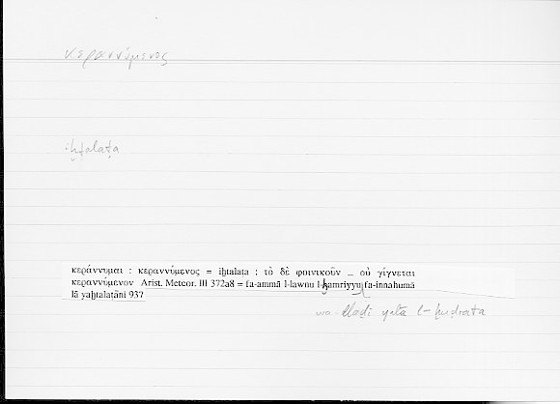 κεραννύμενος
iḫtalaṭa
κεράννυμαι : κεραννύμενος = iḫtalaṭa ; τὸ δὲ φοινικοῦν _ οὐ γίγνεται
κεραννύμενον Arist. Meteor. III 372a8 = fa-ammā l-lawnu l-ḫamriyyu fa-innahumā
lā yaḫtalaṭāni 937
wa-lladī l-ḫuḍrata